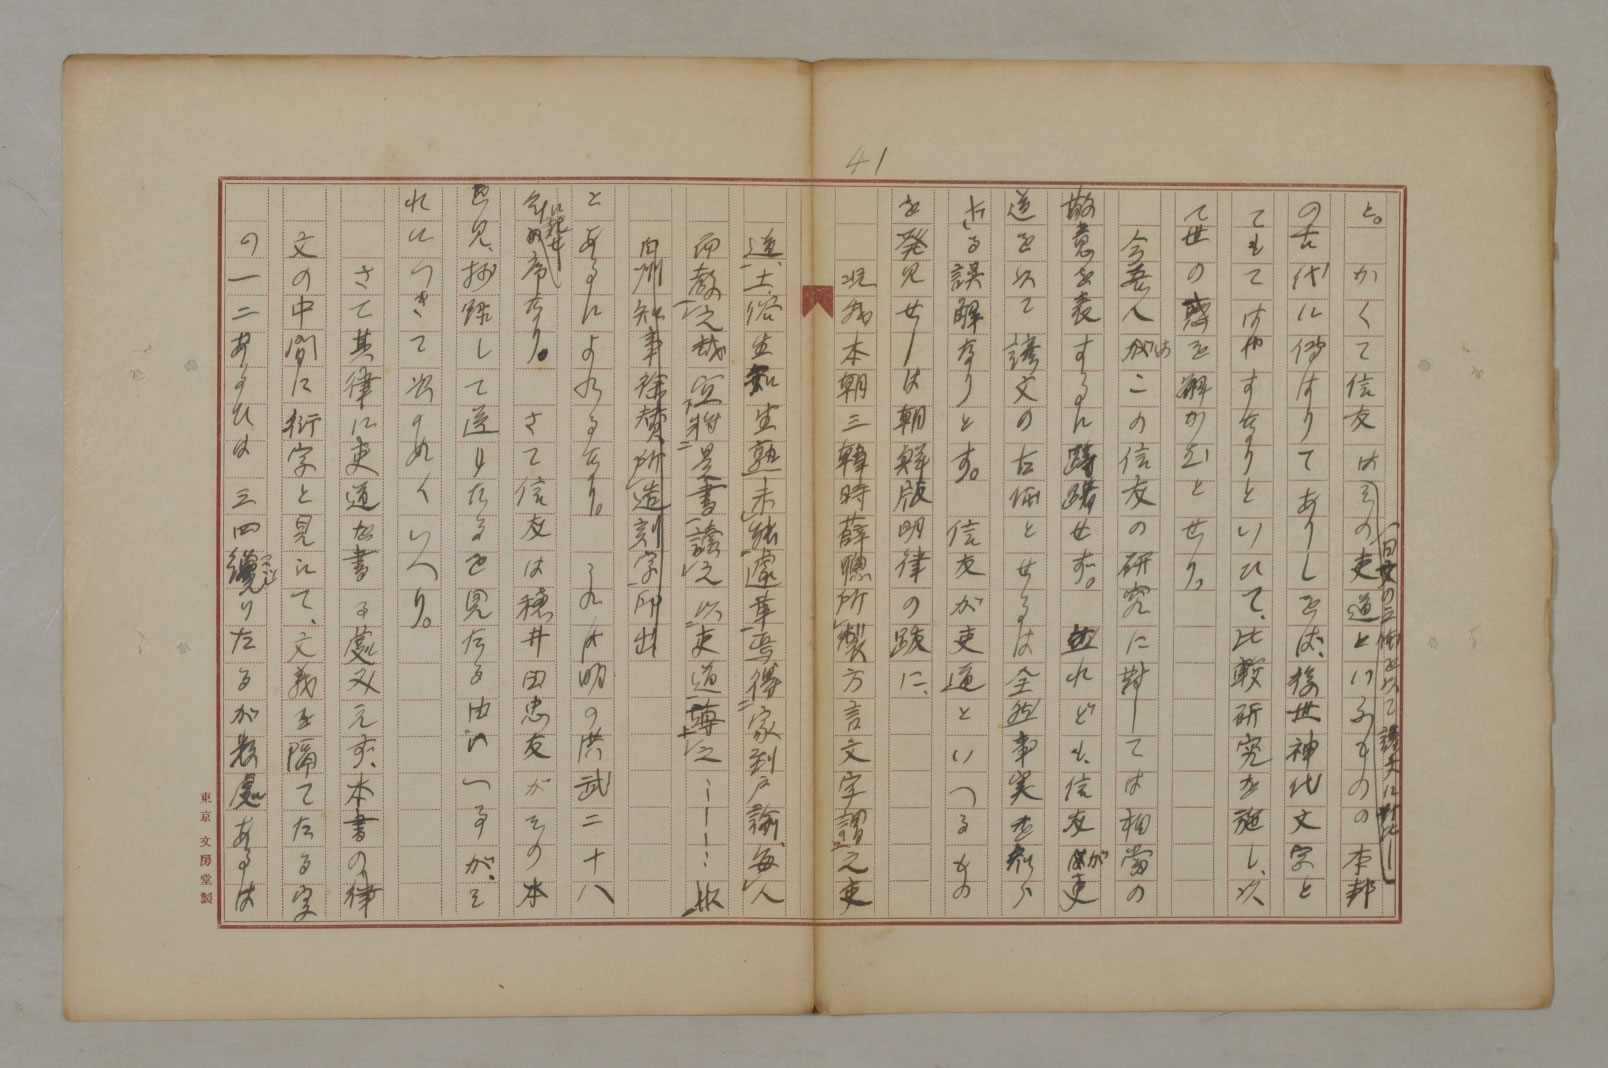 41
と。かくて信友はその吏道といふものの本邦
(日文の三体を以て諺文に対比し
の古代に伝はりてありしをば、後世神代文字と
てもてはやすなりといひて、比較研究を施し、以
て世の惑を解かむとせり。
今吾人はこの信友の研究に対しては相当の
敬意を表するに躊躇せず。然れども、信友が吏
道を以て諺文の古体とせるは全然事実を知ら
ざる誤解なりとす。信友が吏道といへるもの
を発見せしは朝鮮版明律の跋に、
況我本朝三韓時薛聡所製方言文字謂之吏
道、土俗生知生熟未能遽革焉得家到戸諭、毎人
而教之哉宜将是書読之以吏道導之……拠
白州知事徐賛所造刻字印出
とあるによれるなり。これは明の洪武二十八
年に記せし序なり。さて信友は穂井田忠友がその本
を見、抄録して送りたるを見たる由いへるが、そ
れにつきて次の如くいへり。
さて其律に吏道を書る処又云ず、本書の律
文の中間に衍字と見にて、文義を隔てたる字
の一二あるひは三四纔りたるが是処あるは
東京文房堂製